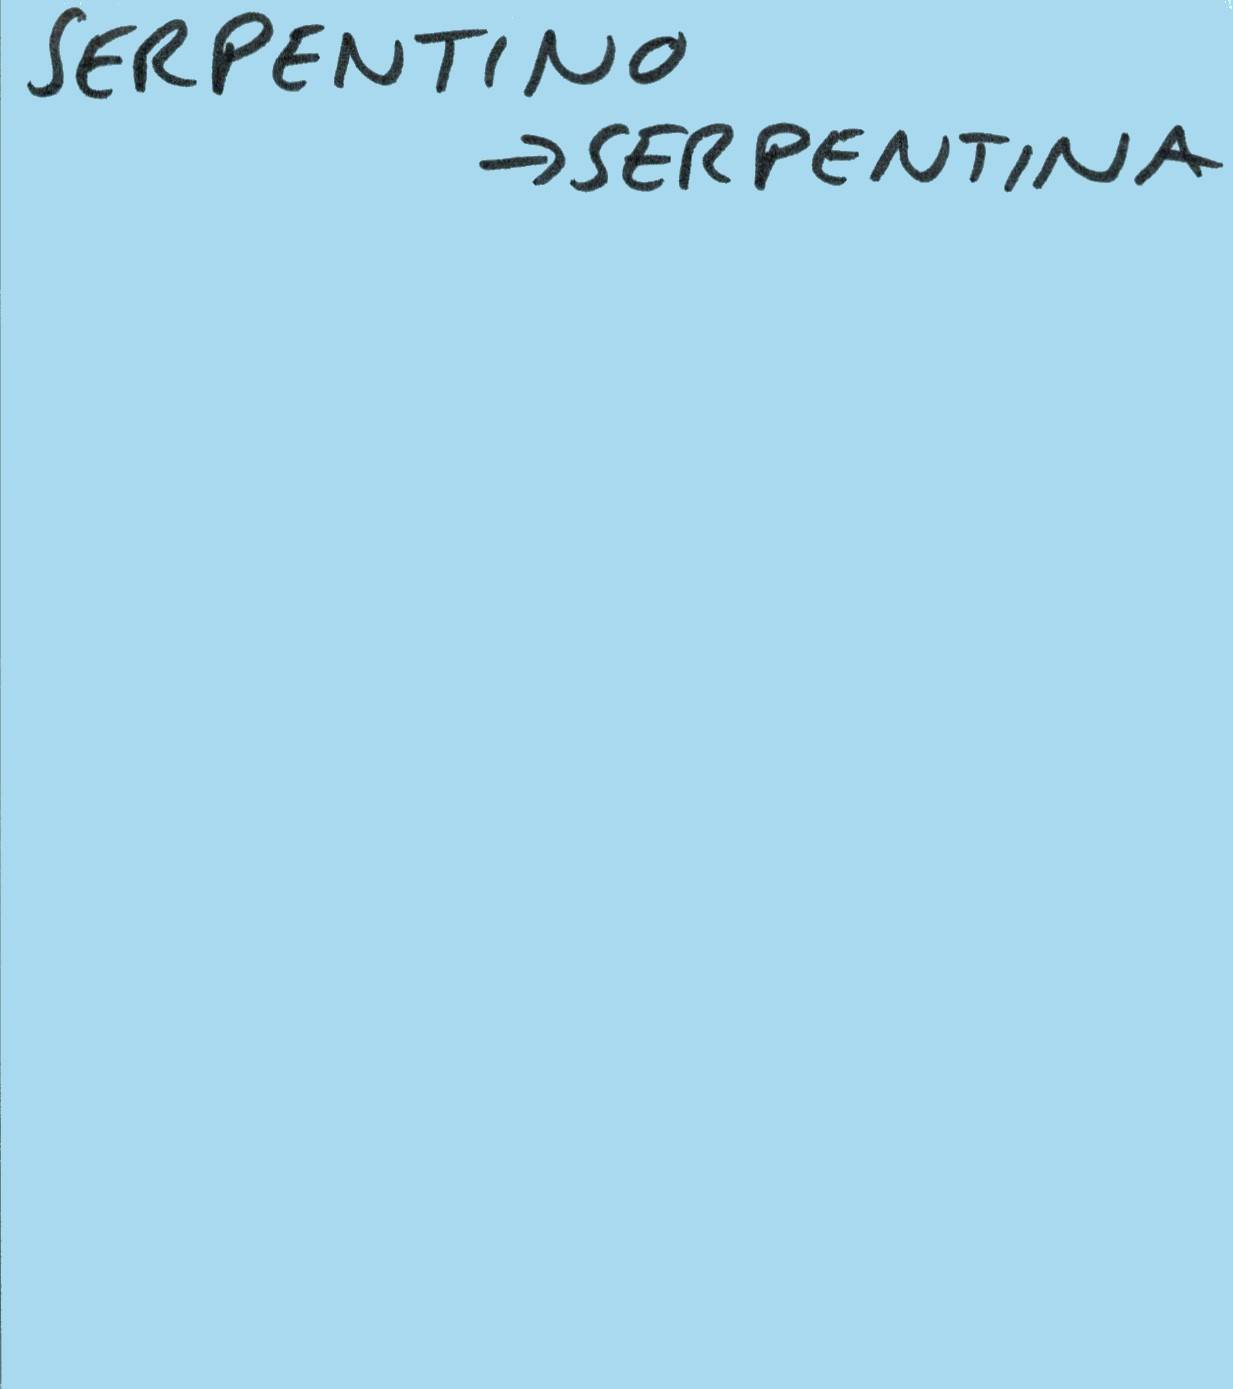 SERPENTINO
→SERPENTINA